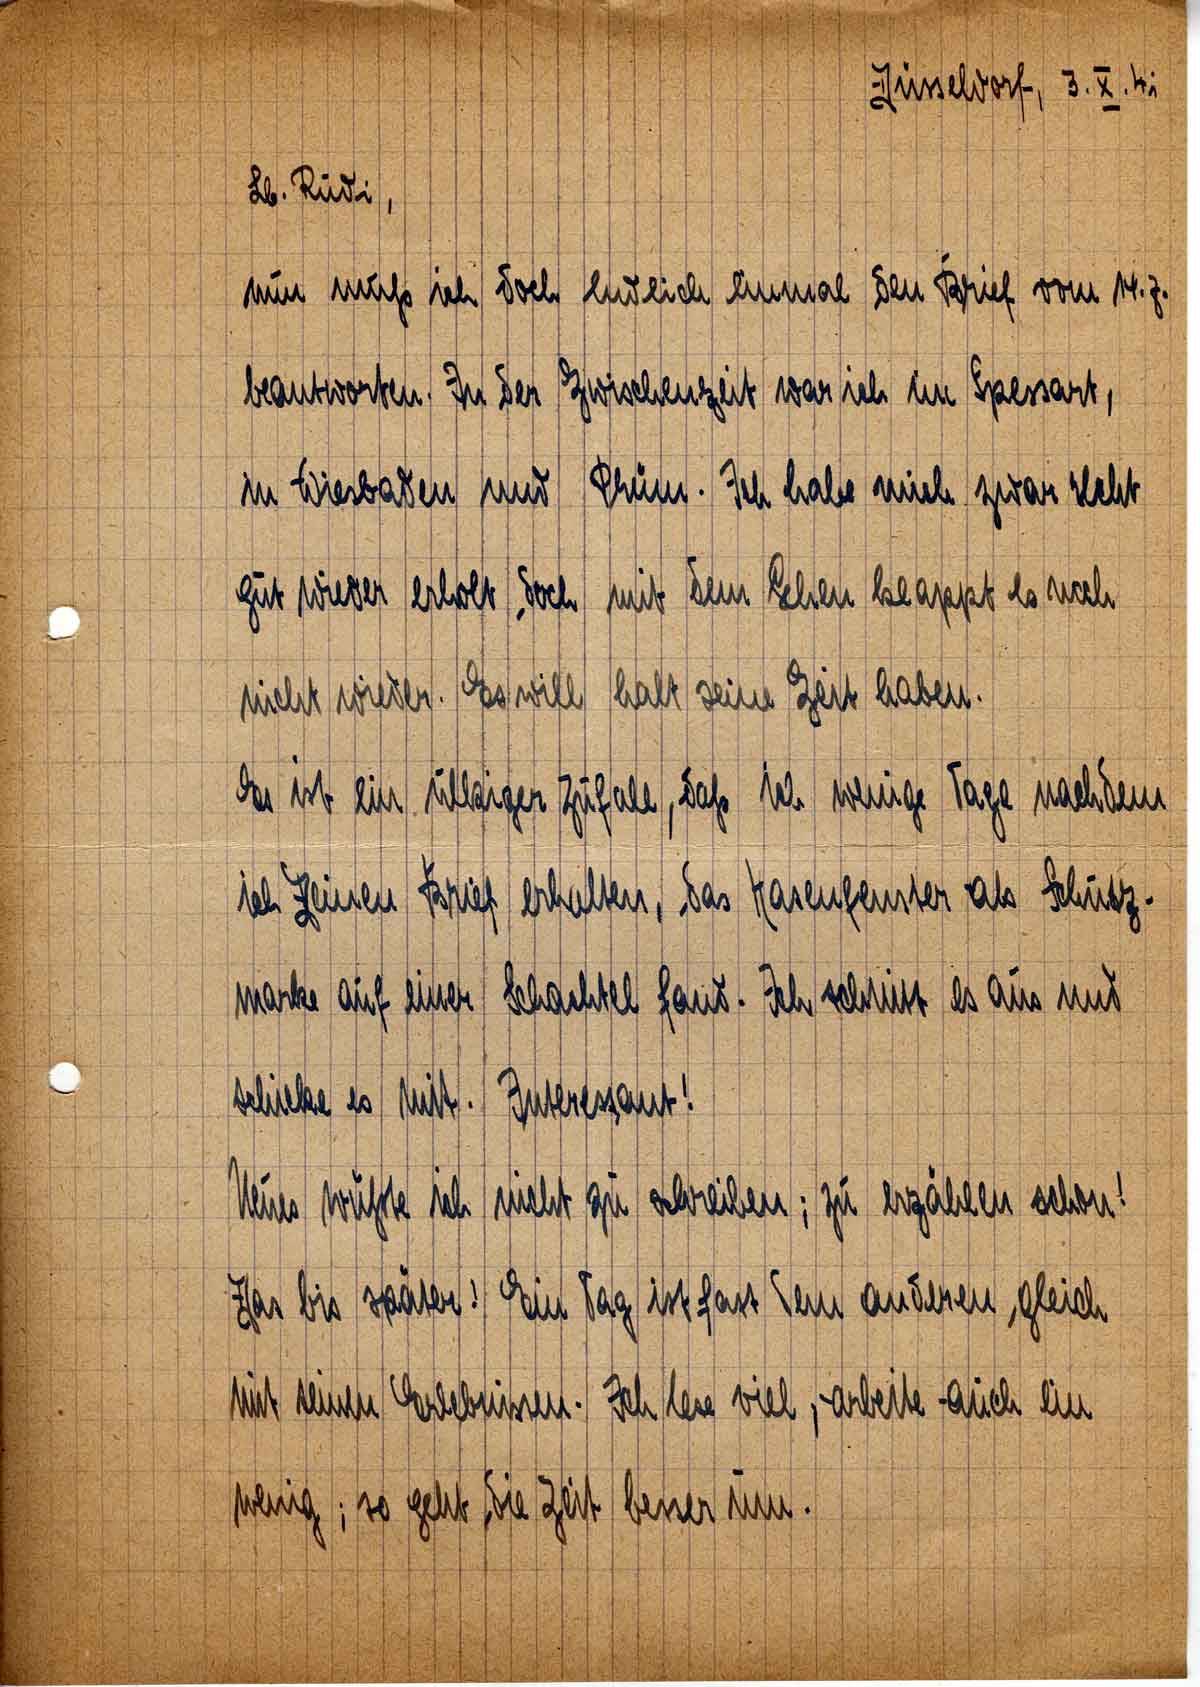 Düsseldorf, 3.X.41
Lb. Rudi,
nun muß ich doch endlich einmal den Brief vom 14.7.
beantworten. In der Zwischenzeit war ich im Spessart,
in Wiesbaden und Prüm. Ich habe mich zwar recht
gut wieder erholt, doch mit dem Gehen klappt es noch
nicht wieder. Es will halt seine Zeit haben.
Es ist ein ulkiger Zufall, daß ich wenige Tage nachdem
ich Deinen Brief erhalten, das Hasenfenster als Schutz-
marke auf einer Schachtel fand. Ich schnitt es aus und
schicke es mit. Interessant!
Neues wüßte ich nicht zu schreiben; zu erzählen schon!
Das bis später! Ein Tag ist fast dem anderen gleich
mit seinen Erlebnissen. Ich lese viel, arbeite auch ein
wenig; so geht die Zeit besser um.